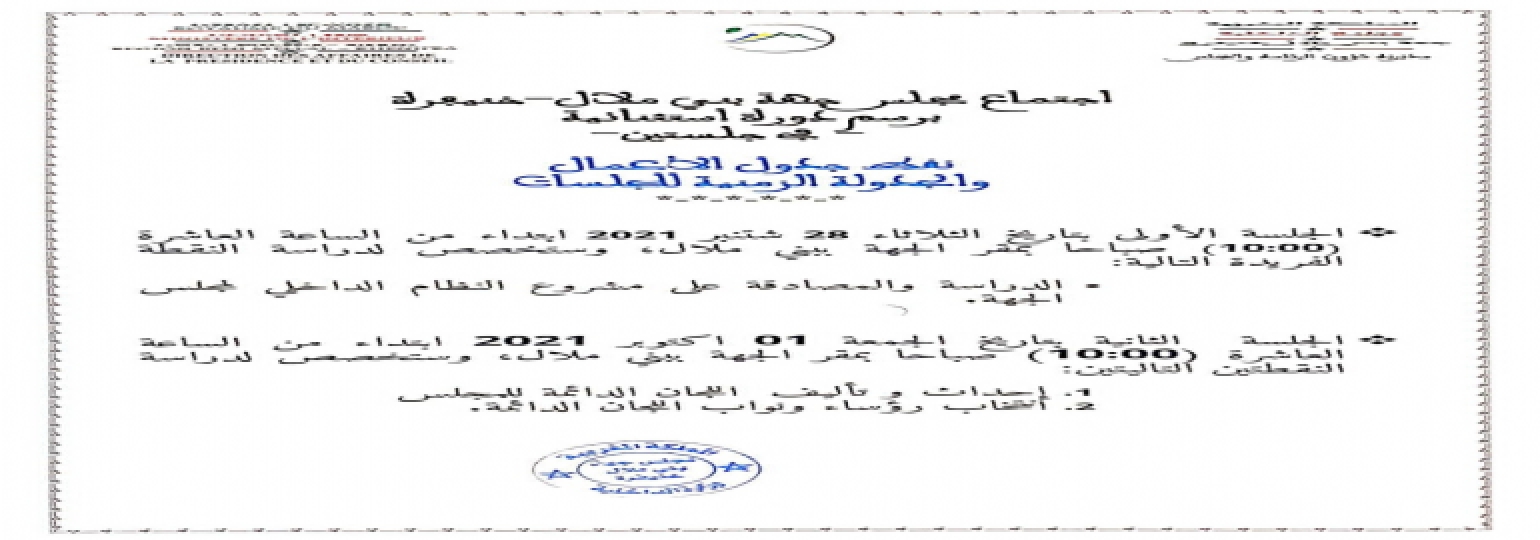 ROYAUME DU MAROC
MINISTERE DE L'INTERIEUR
DIRECTION DES AFFAIRES DE
LA PRESIDENCE ET DU CONSEIL
المملكة المغربية
وزارة الداخلية
مديرية شؤون الرئاسة والمجلس
اجتماع مجلس جهة بني ملال-خنيفرة
برسم دورة استثنائية
- في جلستين-
نقط جدول الأعمال
والجدولة الزمنية للجلسات
*-*-*-*-*-*
الجلسة الأولى بتاريخ الثلاثاء 28 شتنبر 2021 ابتداء من الساعة العاشرة
(10:00) صباحا بمقر الجهة ببني ملال، وستخصص لدراسة النقطة
الفريدة التالية:
- الدراسة والمصادقة على مشروع النظام الداخلي لمجلس
الجهة.
الجلسة الثانية بتاريخ الجمعة 01 اكتوبر 2021 ابتداء من الساعة
العاشرة (10:00) صباحا بمقر الجهة ببني ملال، وستخصص لدراسة
النقطتين التاليتين:
1. إحداث و تأليف اللجان الدائمة للمجلس
2. انتخاب رؤساء ونواب اللجان الدائمة.
المملكة المغربية
مجلس جهة
بني ملال
خنيفرة
وزارة الداخلية